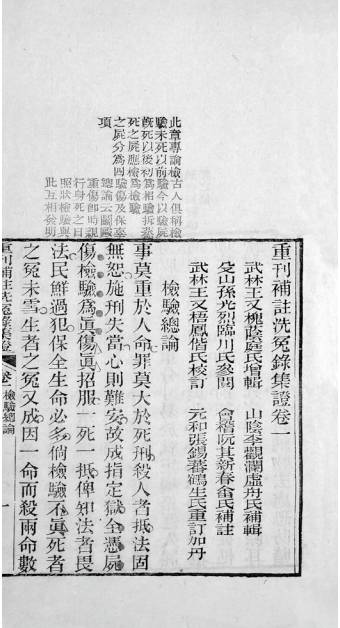 此章專論檢
驗未死以前
旣死以後初
死之屍應檢
之屍分為四
項
古人俱稱檢
驗今以驗屍
為相驗拆蒸
為檢驗
驗傷及保辜
總論云鬬毆
重傷卽時親
行身死之日
照狀檢驗與
此互相發明
重刊補註洗冤錄集證卷一
武林王又槐蔭庭氏增輯
山陰李觀瀾虛舟氏補輯
孫光烈臨川氏參閱
會稽阮其新春畬氏補註
武林王又梧鳳偕氏校訂
元和張錫蕃鶴生氏重訂加丹
檢驗總論
事莫重於人命罪莫大於死刑殺人者抵法固
無恕施刑失當心則難安故成指定獄全憑屍
傷檢驗為眞傷眞招服一死一抵俾知法者畏
法民鮮過犯保全生命必多倘檢驗不眞死者
之冤未雪生者之冤又成因一命而殺兩命數
重刊補註洗冤錄集證 卷一 檢驗總論 一